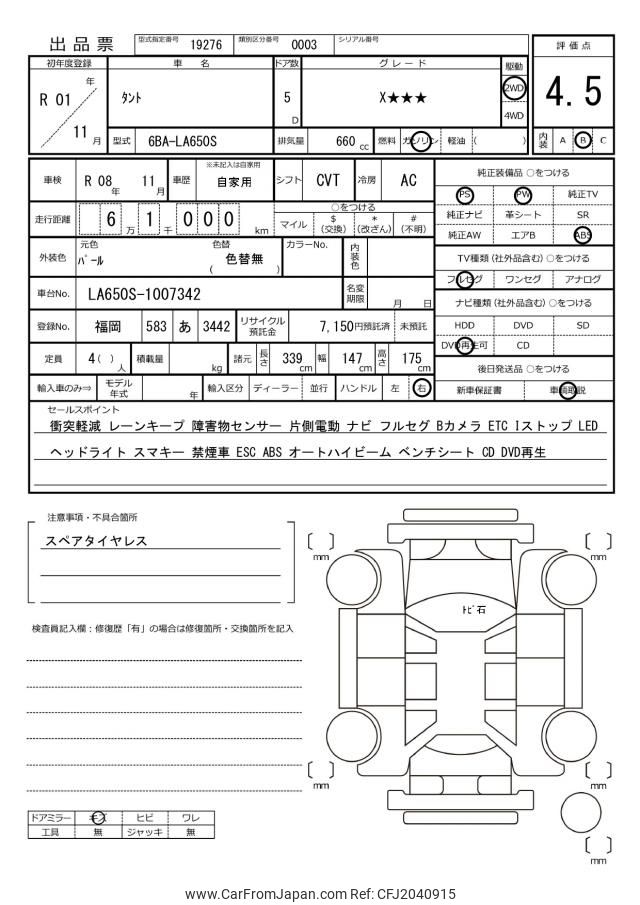 出品票 型式指定番号 19276 類別区分番号 0003 シリアル番号
評価点
4.5
内装 A B C
初年度登録 車名 ドア数 グレード 駆動
R 01 年 11 月
タント 5 D X★★★ 2WD 4WD
型式 6BA-LA650S 排気量 660 cc 燃料 ガソリン 軽油 ( )
車検 R 08 年 11 月 車歴 ※未記入は自家用 自家用 シフト CVT 冷房 AC
走行距離 6 万 1 千 0 0 0 km
○をつける
マイル $ (交換) * (改ざん) # (不明)
外装色 元色 パール 色替 色替無 ( ) カラーNo. 内装色
車台No. LA650S-1007342 名変期限 月 日
登録No. 福岡 583 あ 3442 リサイクル預託金 7,150円預託済 未預託
定員 4 ( ) 人 積載量 kg 諸元 長さ 339 cm 幅 147 cm 高さ 175 cm
輸入車のみ⇒ モデル年式 年 輸入区分 ディーラー 並行 ハンドル 左 右
純正装備品 ○をつける
PS PW 純正TV
純正ナビ 革シート SR
純正AW エアB ABS
TV種類 (社外品含む) ○をつける
フルセグ ワンセグ アナログ
ナビ種類 (社外品含む) ○をつける
HDD DVD SD
DVD再生可 CD
後日発送品 ○をつける
新車保証書 車輌取説
セールスポイント
衝突軽減 レーンキープ 障害物センサー 片側電動 ナビ フルセグ Bカメラ ETC Iストップ LED
ヘッドライト スマキー 禁煙車 ESC ABS オートハイビーム ベンチシート CD DVD再生
注意事項・不具合箇所
スペアタイヤレス
検査員記入欄：修復歴「有」の場合は修復箇所・交換箇所を記入
mm
mm
トビ石
mm
mm
mm
ドアミラー キズ ヒビ ワレ
工具 無 ジャッキ 無
www.CarFromJapan.com Ref: CFJ2040915